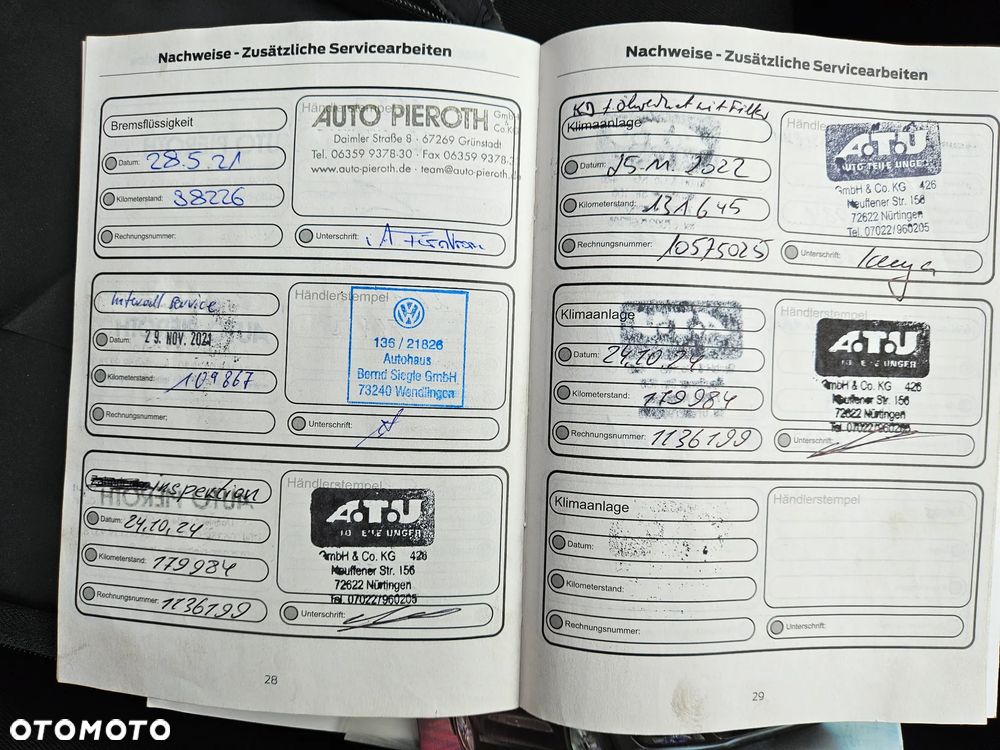 Nachweise - Zusätzliche Servicearbeiten
Bremsflüssigkeit
Datum: 28.5.21
Kilometerstand: 98226
Rechnungsnummer:
Händlerstempel
AUTO PIEROTH GmbH & Co. KG
Daimler Straße 8 · 67269 Grünstadt
Tel. 06359 9378-30 · Fax 06359 9378-
www.auto-pieroth.de · team@auto-pieroth.d
Unterschrift: iA
Intervall service
Datum: 29. NOV. 2021
Kilometerstand: 109867
Rechnungsnummer:
Händlerstempel
136 / 21826
Autohaus
Bernd Siegle GmbH
73240 Wendlingen
Unterschrift:
inspektion
Datum: 24.10.24
Kilometerstand: 179984
Rechnungsnummer: 1136199
Händlerstempel
A.T.U
GmbH & Co. KG 426
Neuffener Str. 156
72622 Nürtingen
Tel. 07022/960205
Unterschrift:
28
Nachweise - Zusätzliche Servicearbeiten
KD + Ölwechsel mit Filter
Klimaanlage
Datum: 25.11.2022
Kilometerstand: 131.645
Rechnungsnummer: 10575025
Händ
A.T.U
AUTO-TEILE UNGER
GmbH & Co. KG 426
Neuffener Str. 156
72622 Nürtingen
Tel. 07022/960205
Unterschrift:
Klimaanlage
Datum: 24.10.24
Kilometerstand: 179984
Rechnungsnummer: 1136199
Händlerstempel
A.T.U
GmbH & Co. KG 426
Neuffener Str. 156
72622 Nürtingen
Tel. 07022/960205
Unterschrift:
Klimaanlage
Datum:
Kilometerstand:
Rechnungsnummer:
Händlerstempel
Unterschrift:
29
OTOMOTO